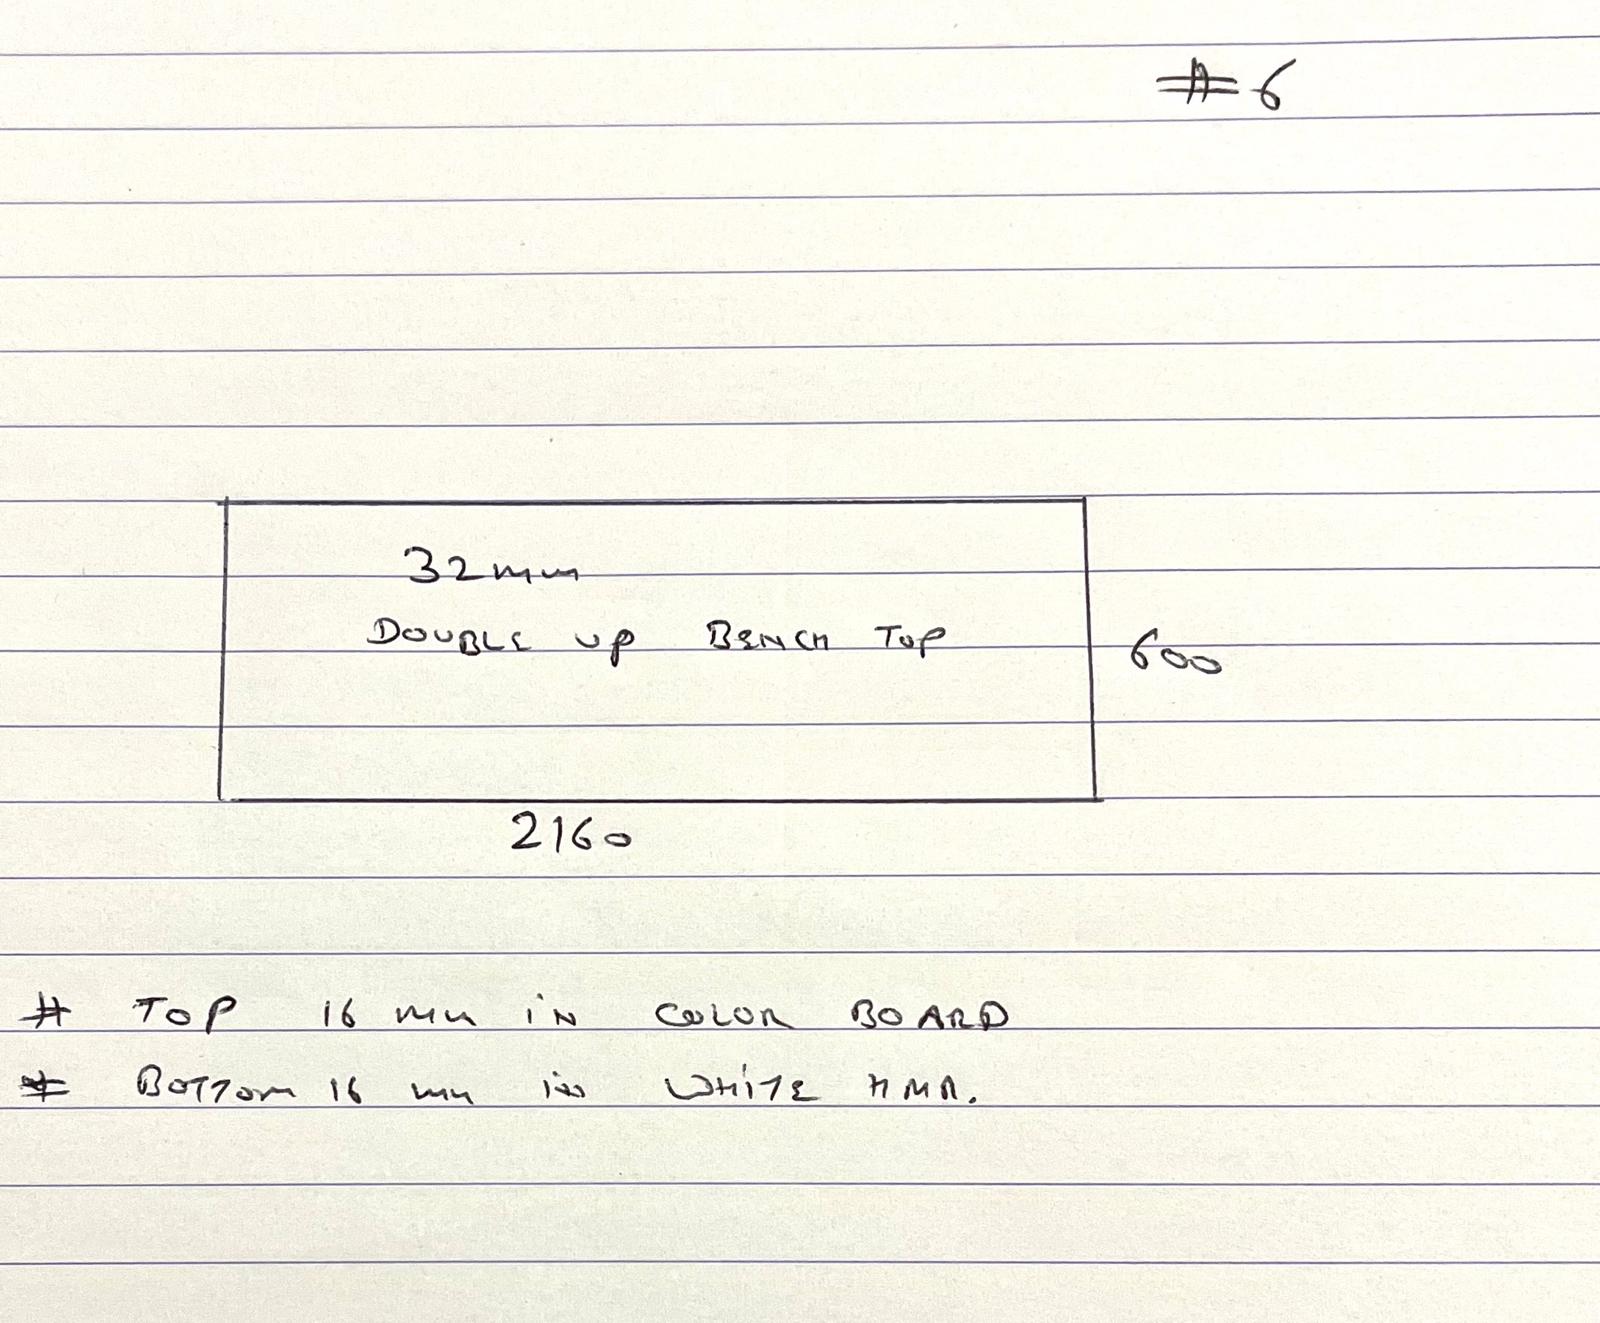 # 6
32mm
DOUBLE UP BENCH TOP
600
2160
# TOP 16 mm in COLOR BOARD
# BOTTOM 16 mm in WHITE HMR.